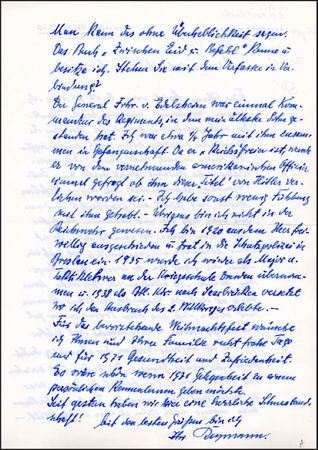 Man kann das ohne Überheblichkeit sagen.
Das Buch "Zwischen Leid u. Befehl" kenne u
besitze ich. Stehen Sie mit dem Verfasser in Ver-
bindung?
Der General Frhr. v. Edelsheim war einmal Kom-
mandeur des Regiments, in dem mein ältester Sohn ge-
standen hat. Ich war etwa ¼ Jahr mit ihm zusam-
men in Gefangenschaft. Da er "Reichsfreiherr" ist, wurde
er von dem vernehmenden amerikanischen Offizier
einmal gefragt ob ihm dieser Titel von Hitler ver-
liehen worden sei. – Ich habe sonst wenig Fühlung
mit ihm gehabt. – Übrigens bin ich nicht in der
Reichswehr gewesen. Ich bin 1920 aus dem Heer frei-
willig ausgeschieden u. trat in die Schutzpolizei in
Breslau ein. 1935 wurde ich wieder als Major u.
Taktiklehrer an der Kriegsschule Dresden übernom-
men u. 1938 als Btl. Kdr. nach Saarbrücken versetzt
wo ich den Ausbruch des 2. Weltkrieges erlebte. –
Für das bevorstehende Weihnachtsfest wünsche
ich Ihnen und Ihrer Familie recht frohe Tage
und für 1971 Gesundheit und Zufriedenheit.
Es wäre schön wenn 1971 Gelegenheit zu einem
persönlichen Kennenlernen geben möchte.
Seit gestern haben wir hier eine herrliche Schneeland-
schaft! Mit den besten Grüßen bin ich
Ihr